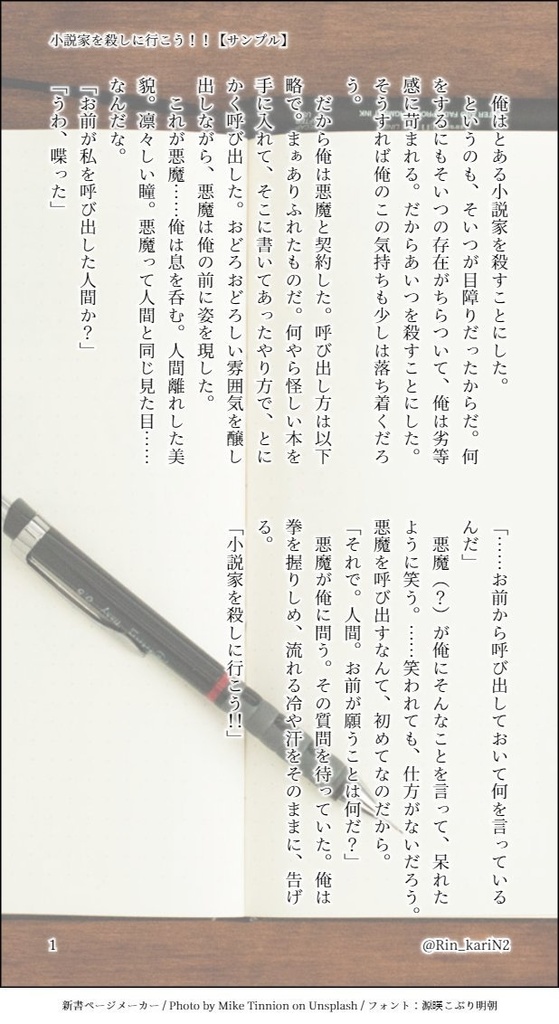 小説家を殺しに行こう！！【サンプル】
　俺はとある小説家を殺すことにした。
　というのも、そいつが目障りだったからだ。何
をするにもそいつの存在がちらついて、俺は劣等
感に苛まれる。だからあいつを殺すことにした。
そうすれば俺のこの気持ちも少しは落ち着くだろ
う。
　だから俺は悪魔と契約した。呼び出し方は以下
略で。まぁありふれたものだ。何やら怪しい本を
手に入れて、そこに書いてあったやり方で、とに
かく呼び出した。おどろおどろしい雰囲気を醸し
出しながら、悪魔は俺の前に姿を現した。
　これが悪魔……俺は息を呑む。人間離れした美
貌。凛々しい瞳。悪魔って人間と同じ見た目……
なんだな。
「お前が私を呼び出した人間か？」
「うわ、喋った」
「……お前から呼び出しておいて何を言っている
んだ」
　悪魔（？）が俺にそんなことを言って、呆れた
ように笑う。……笑われても、仕方がないだろう。
悪魔を呼び出すなんて、初めてなのだから。
「それで。人間。お前が願うことは何だ？」
　悪魔が俺に問う。その質問を待っていた。俺は
拳を握りしめ、流れる冷や汗をそのままに、告げ
る。
「小説家を殺しに行こう!!」
1
@Rin_kariN2
新書ページメーカー / Photo by Mike Tinnion on Unsplash / フォント：源暎こぶり明朝